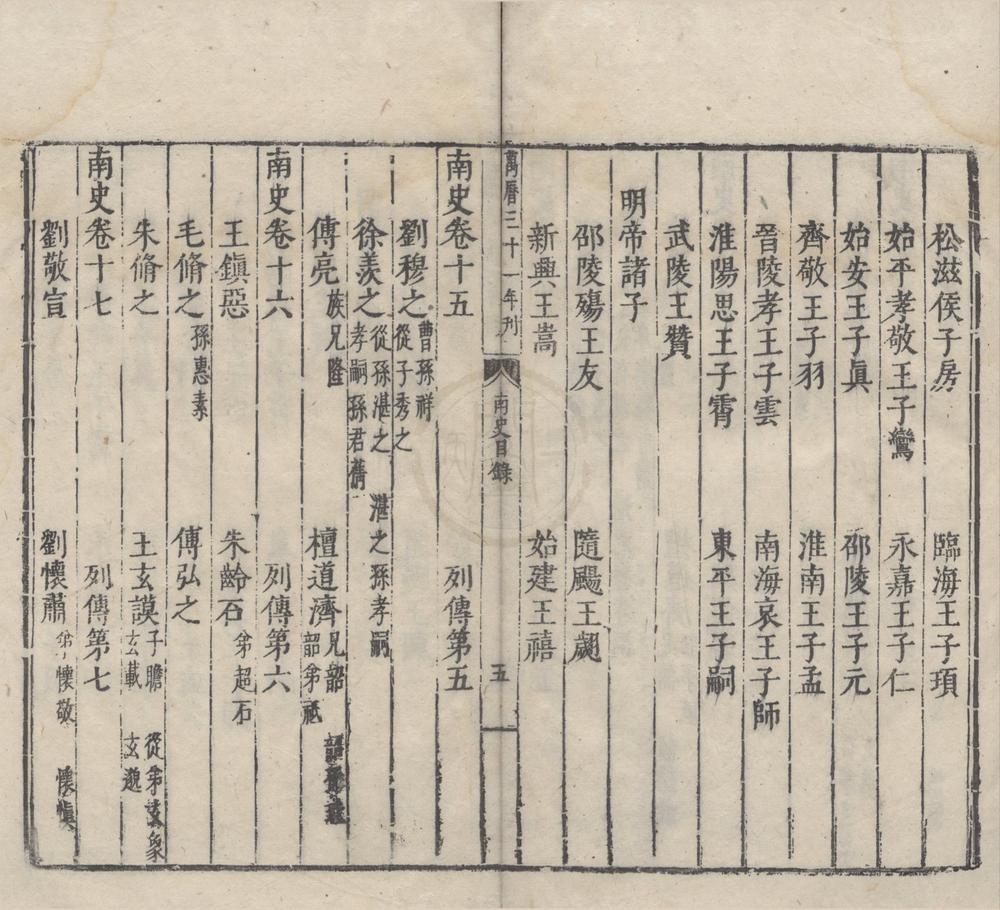 松滋侯子房　臨海王子頊
始平孝敬王子鸞　永嘉王子仁
始安王子眞　邵陵王子元
齊敬王子羽　淮南王子孟
晉陵孝王子雲　南海哀王子師
淮陽思王子霄　東平王子嗣
武陵王贊
明帝諸子
邵陵殤王友　隨陽王翽
新興王嵩　始建王禧
萬曆三十一年刊
南史目錄
五
南史卷十五　列傳第五
劉穆之　曹孫祥　從子秀之
徐羨之　從孫湛之　湛之孫孝嗣　孝嗣孫君蒨
傅亮　族兄隆　檀道濟　兄韶　韶弟祗
南史卷十六　列傳第六
王鎭惡　朱齡石　弟超石
毛脩之　孫惠素　傅弘之
朱脩之　王玄謨　子瞻　從弟玄象　玄載　玄邈
南史卷十七　列傳第七
劉敬宣　劉懷肅　弟懷敬　懷愼